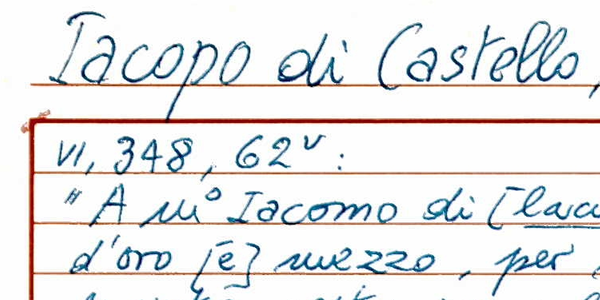 Iacopo di Castello,
VI, 348, 62v:
"A mo Iacomo di [
d'oro [e] mezzo, per